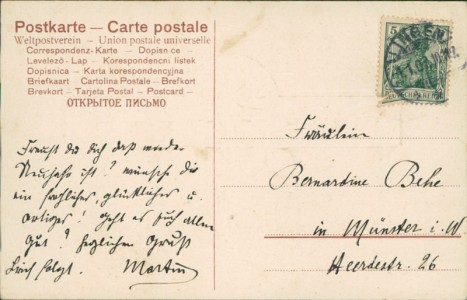 Postkarte — Carte postale
Weltpostverein — Union postale universelle
Correspondenz-Karte — Dopisnice
Levelező-Lap — Korespondencni listek
Dopisnica — Karta korespondencyjna
Briefkaart — Cartolina Postale — Brefkort
Brevkort — Tarjeta Postal — Postcard —
ОТКРЫТОЕ ПИСЬМО
5
LINGEN
Freust du dich daß wieder
Neujahr ist? wünsche dir
ein fröhliches, glückliches u.
! Geht es Euch allen
gut? Herzlichen Gruß
Brief folgt. Martin
Fräulein
Bernardine Behe
in Münster i. W.
Heerdestr. 26